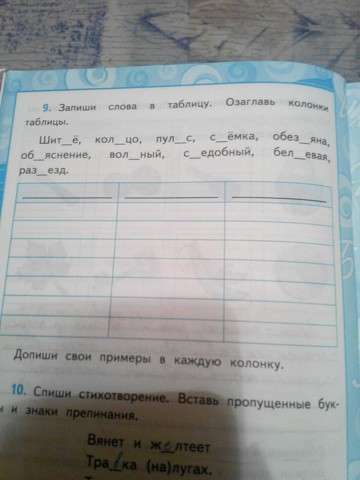 9. Запиши слова в таблицу. Озаглавь колонки
таблицы.
Шит__ё, кол__цо, пул__с, с__ёмка, обез__яна,
об__яснение, вол__ный, с__едобный, бел__евая,
раз__езд.
Допиши свои примеры в каждую колонку.
10. Спиши стихотворение. Вставь пропущенные бук-
ы и знаки препинания.
Вянет и желтеет
Травка (на)лугах.